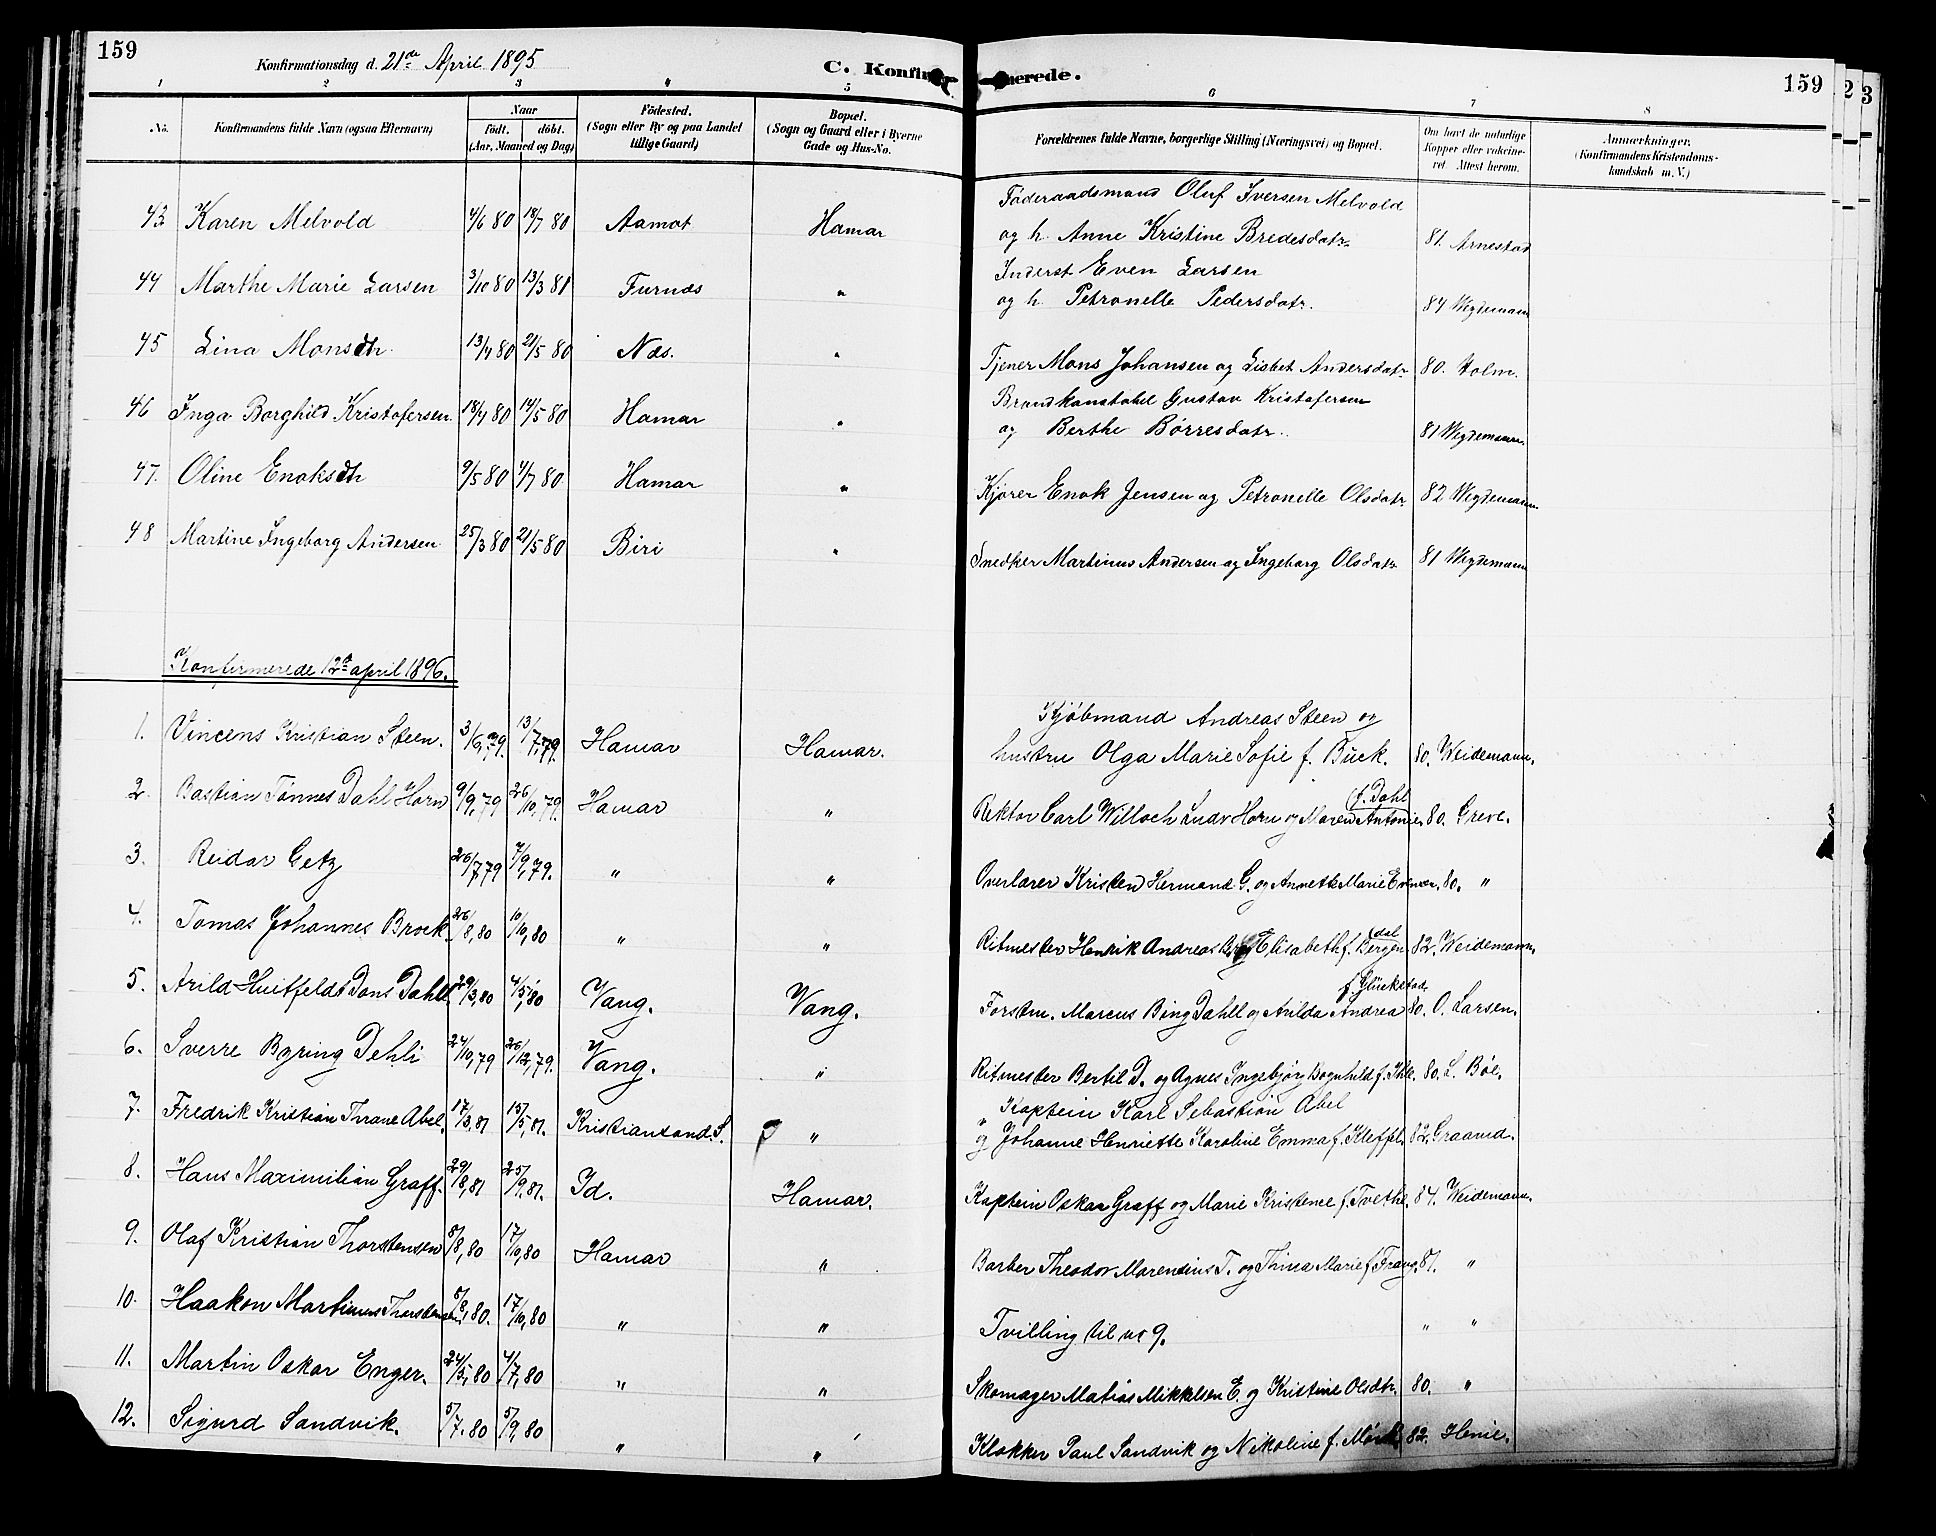 159
Konfirmationsdag d. 21de April 1895
C. Konfirmerede.
159
1 2 3 4 5 6 7 8
No. Konfirmandens fulde Navn (ogsaa Efternavn) Naar født. døbt. (Aar, Maaned og Dag) Fødested. (Sogn eller By og paa Landet tillige Gaard) Bopæl. (Sogn og Gaard eller i Byerne Gade og Hus-No. Forældrenes fulde Navne, borgerlige Stilling (Næringsvei) og Bopæl. Om havt de naturlige Kopper eller vaccineret. Attest herom. Anmærkninger. (Konfirmandens Kristendomskundskab m. V.)
43 Karen Melvold 4/6 80 18/7 80 Aamot Hamar Föderaadsmand Oluf Iversen Melvold
og h. Anne Kristine Bredesdatr. 81. Arnestad
44 Marthe Marie Larsen 3/10 80 13/3 81 Furnæs " Inderst Even Larsen
og h. Petronelle Pedersdatr. 84 Wegdemann
45 Lina Monsdtr. 13/4 80 21/5 80 Næs. " Tjener Mons Johansen og Lisbet Andersdatr. 80. Holm.
46 Inga Borghild Kristofersen 18/4 80 14/5 80 Hamar " Brandkonstabel Gustav Kristofersen
og Berthe Børresdatr. 81 Wegdemann
47. Oline Enoksdtr 9/5 80 4/7 80 Hamar " Kjører Enok Jensen og Petronelle Olsdatr. 82 Wegdemann
48 Martine Ingeborg Andersen 25/3 80 21/5 80 Biri " Snedker Martinus Andersen og Ingeborg Olsdatr 81 Wegdemann
Konfirmerede 12te april 1896.
1. Vincens Kristian Steen. 3/6, 79. 13/7, 79. Hamar Hamar. Kjøbmand Andreas Steen og
hustru Olga Marie Sofie f. Bück. 80. Weidemann.
2. Bastian Tönnes Dahl Horn 9/9, 79 26/10, 79. Hamar " Rektor Carl Willoch Ludv Horn og Maren Antonie f. Dahl 80. Greve.
3. Reidar Getz 26/7 79 7/9, 79. " " Overlærer Kristen Hermand G. og Annette Marie 80. "
4. Tomas Johannes Brock. 26/8, 80 10/10, 80 " " Ritmester Henrik Andreas og Elisabeth f. Bergendal 82. Weidemann.
5. Arild Huitfeldt Dons Dahll 29/3, 80 4/5, 80 Vang. Vang. Forstm. Marcus Bing Dahll og Arilda Andrea f. Glückstad 80. O. Larsen.
6. Sverre Byring Dehli 24/10, 79 26/12, 79. Vang. " Ritmester Bertil D. og Agnes Ingebjørg Bognhild f. Ihle. 80. L. Bøe.
7. Fredrik Kristian Thrane Abel. 17/3, 81 15/5, 81. Kristiansand S. " Kaptein Karl Sebastian Abel
og Johanne Henriette Karoline Emma f. Kleffel. 82. Graarud.
8. Hans Maximilian Graff. 29/8, 81 25/9, 81. Id. Hamar. Kaptein Oskar Graff og Marie Kristine f. Tvethe. 84. Weidemann.
9. Olaf Kristian Thorstensen 5/8, 80 17/10, 80 Hamar " Barber Theodor Marensius T. og Thina Marie f. Frang. 81. "
10. Haakon Martinius Thorstensen 5/8, 80. 17/10, 80 " " Tvilling til no 9. " "
11. Martin Oskar Enger. 24/5, 80 4/7, 80 " " Skomager Matias Mikkelsen E. og Kristine Olsdtr. 80. "
12. Sigurd Sandvik. 5/7. 80 5/9, 80 " " Klokker Paul Sandvik og Nikoline f. Mørk. 82. Henie.